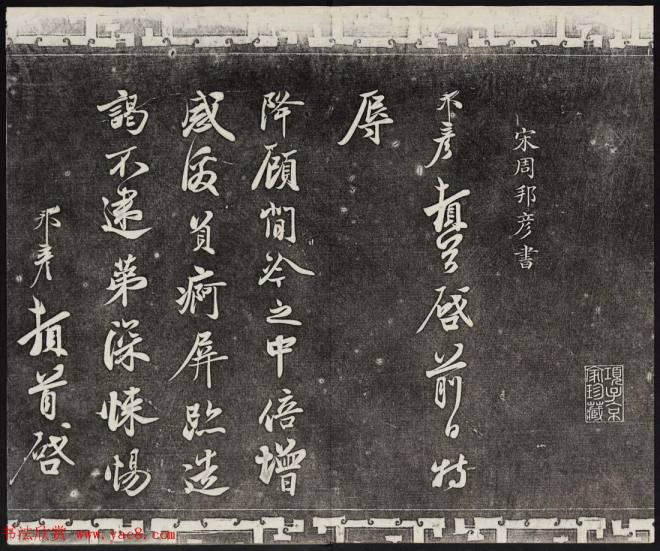 宋周邦彦書
邦彦頓首啓前日特
辱
降顧閒冷之中倍增
感負痾屏跡造
謁不逮第深悚惕
邦彦頓首啓
項子京
家珍藏
书法欣赏 www.yac8.com